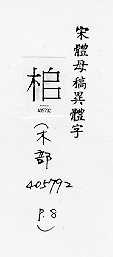 宋體母稿異體字
(木部
405792
P.8)